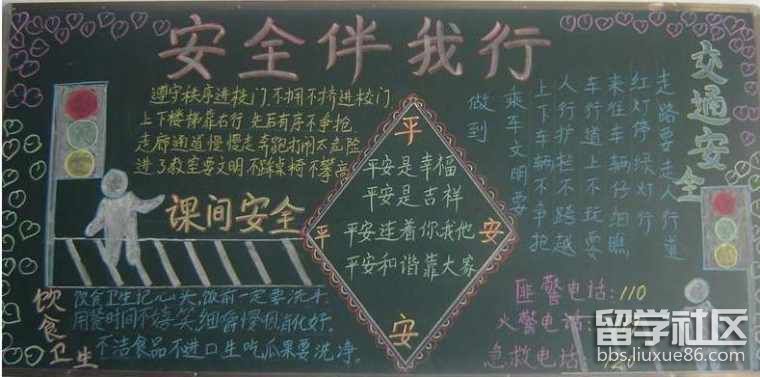 安全伴我行
遵守秩序进校门 不拥不挤进校门
上下楼梯靠右行 先后有序不争抢
走廊通道慢慢走 奔跑打闹太危险
进了教室要文明 不踩桌椅不攀高
课间安全
平
平安是幸福
平安是吉祥
平安连着你我他
平安和谐靠大家
平
安
安
交通安全
走路要走人行道
红灯停绿灯行
来往车辆仔细瞧
车行道上不玩耍
人行护栏不跨越
上下车辆不争抢
乘车文明要
做到
饮食卫生
饮食卫生记心头,饭前一定要洗手
用餐时间不嬉笑,细嚼慢咽消化好。
不洁食品不进口 生吃瓜果要洗净。
匪警电话:110
火警电话:
急救电话:120
留学社区
bbs.liuxue86.com